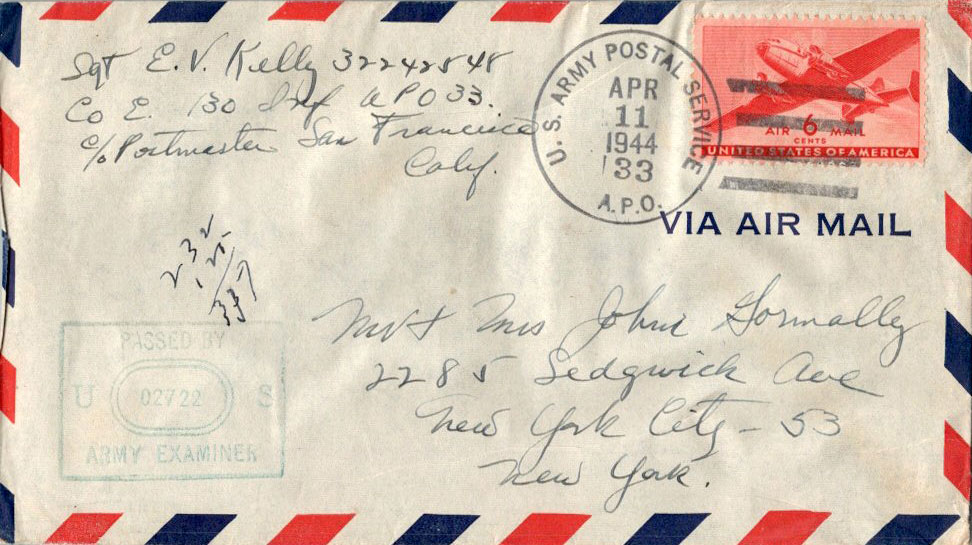 Sgt E. V. Kelly 32242548
Co E. 130 Inf APO 33.
c/o Postmaster San Francisco
Calif.
U. S. ARMY POSTAL SERVICE
APR
11
1944
33
A.P.O.
AIR 6 MAIL
CENTS
UNITED STATES OF AMERICA
VIA AIR MAIL
232
337
PASSED BY
U 02722 S
ARMY EXAMINER
Mr + Mrs John Gormally
2285 Sedgwick Ave
New York City - 53
New York.